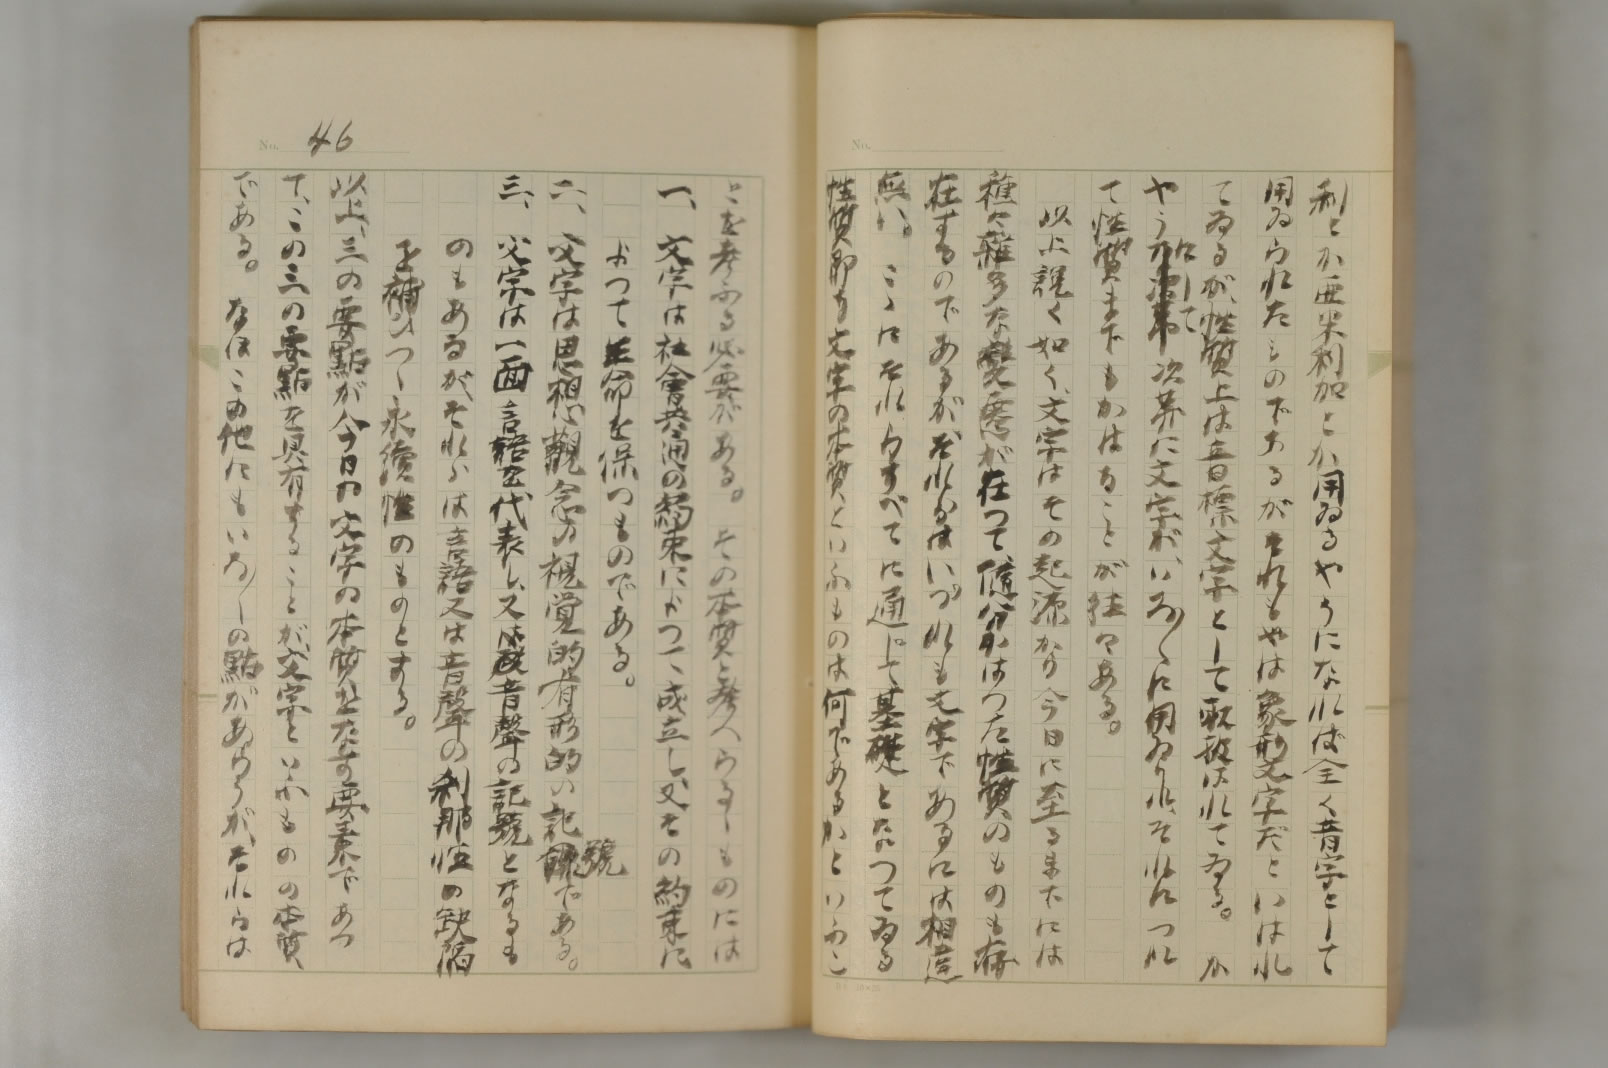 利とか亜米利加とか用ゐるやうになれば全く音字として
用ゐられたものであるがそれもやは象形文字だといはれ
てゐるが、性質上は音標文字として取扱はれてゐる。か
やうにして次第に文字がいろ〱に用ゐられ、それにつれ
て性質までもかはることが往々ある。
以上説く如く、文字はその起源から今日に至るまでには
種々雜多な變遷が在つて隨分かはつた性質のものも存
在するのであるが、それらはいづれも文字であるには相違
無い。こゝにそれらすべてに通じて基礎となつてゐる
性質即ち文字の本質といふものは何であるかといふこ
No.
とを考ふる必要がある。その本質と考へらるゝものには
一、文字は社會共通の約束によつて成立し、又その約束に
よつて生命を保つものである。
二、文字は思想、觀念の視覚的有形的の記號である。
三、文字は一面言語を代表し、又は聲音の記號となるも
のもあるが、それらは言語又は音聲の刹那性の缺陥
を補ひつゝ永續性のものとする。
以上、三の要點が今日の文字の本質をなす要素であつ
て、この三の要點を具有することが文字といふものの本質
である。なほこの他にもいろ〱の點があらうが、それらは
No. 46